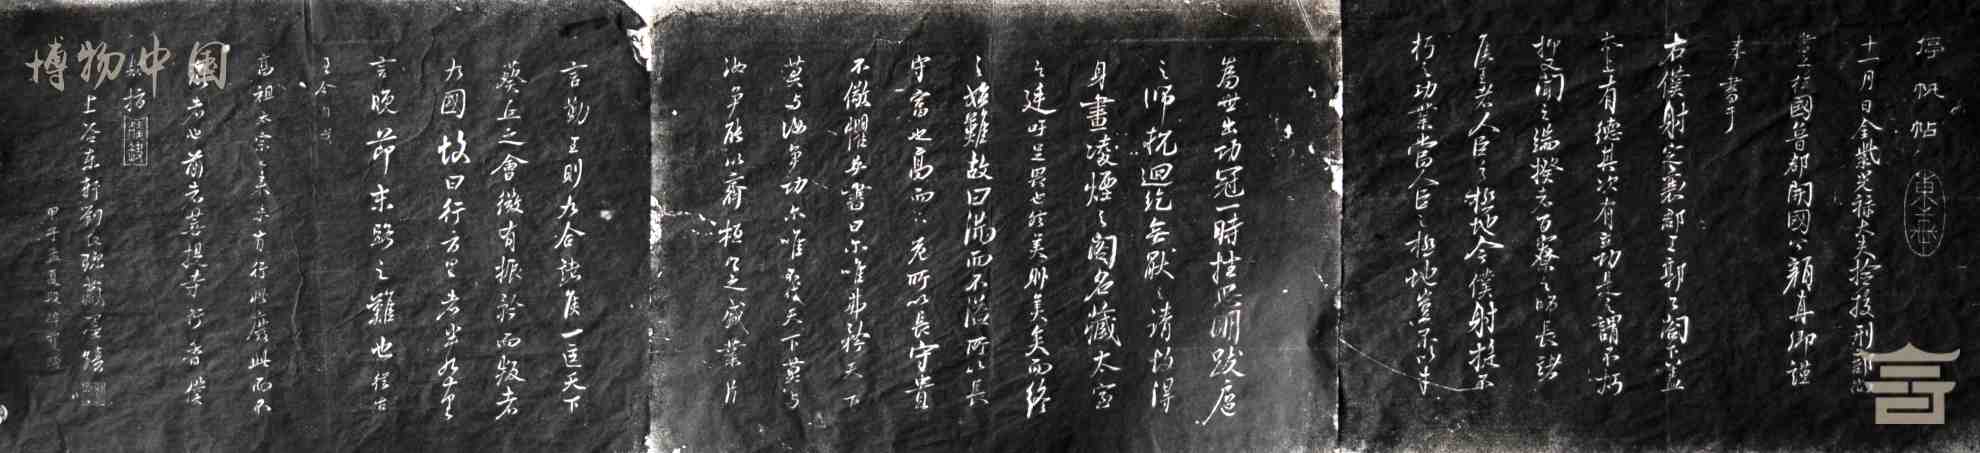 停帆帖
十一月日金紫光祿大夫檢校刑部尚
書上柱國魯郡開國公顏真卿謹
奉書于
右僕射定襄郡王郭公閣下蓋
太上有德其次有立功是之謂不朽
抑又聞之端揆者百寮之師長諸
侯王者人臣之極地今僕射挺不
朽之功業當人臣之極地豈不以才
為世出功冠一時挫思明跋扈
之師抗迴紇無厭之請故得
身畫凌煙之閣名藏太室
之廷吁足畏也然美則美矣而終
之始難故曰滿而不溢所以長
守富也高而不危所以長守貴
不儆懼乎書曰爾唯弗矜天下
莫與汝爭功爾唯不伐天下莫與
汝爭能以齊桓公之盛業片
言勤王則九合諸侯一匡天下
葵丘之會微有振矜而叛者
九國故曰行百里者半九十里
言晚節末路之難也從古
至今
高祖太宗
而不
者也前者菩提寺行香僕
射指
博物中国